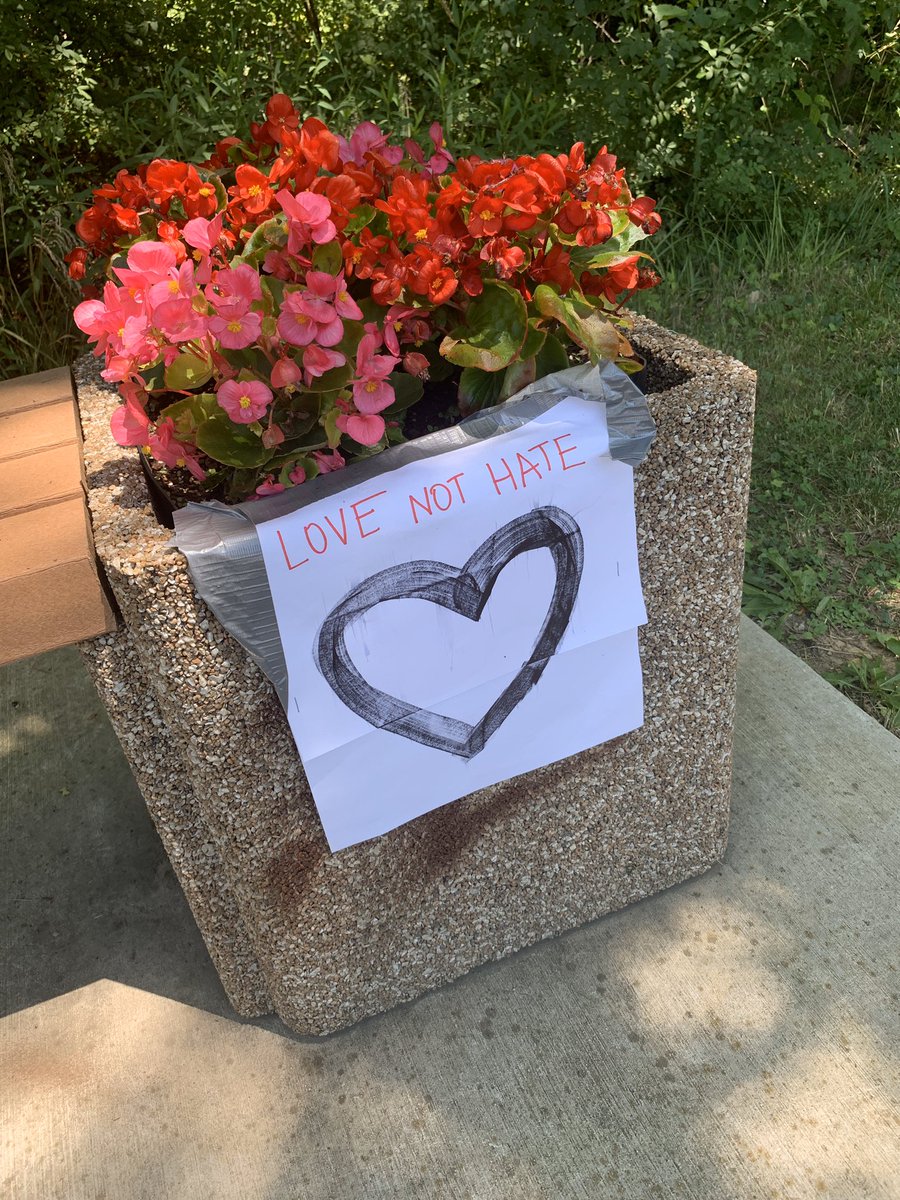 LOVE NOT HATE